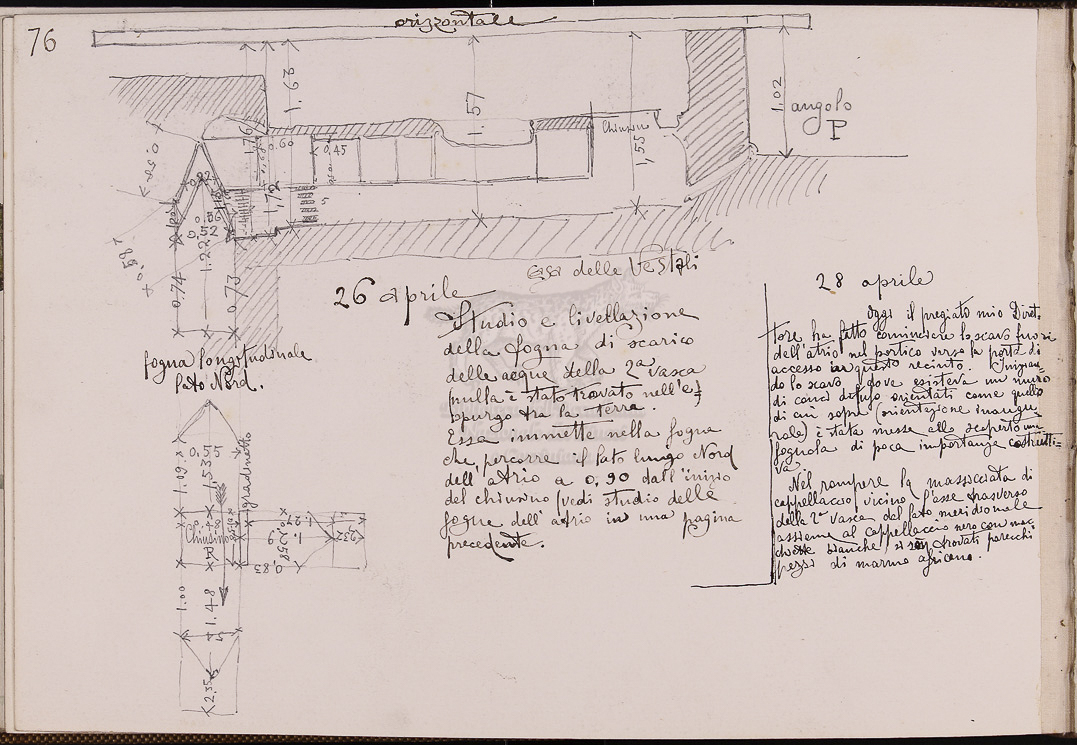 76
orizzontale
1.63
1.57
1,55
1,02
angolo
P
Chiusino
1.76
0.60
0,45
1,78
5
0.52
1.22
0.74
0.73
0.58
fogna longitudinale
lato Nord.
casa delle Vestali
26 aprile
Studio e livellazione
della fogna di scarico
delle acque della 2ª vasca
(nulla è stato trovato nell'e
spurgo tra la terra.
Essa immette nella fogna
che percorre il lato lungo Nord
dell'atrio a 0,90 dall'inizio
del chiusino (vedi studio delle
fogne dell'atrio in una pagina
precedente.
28 aprile
Oggi il pregiato mio Diret-
tore ha fatto cominciare lo scavo fuori
dell'atrio nel portico verso la porta di
accesso in questo recinto. Inizian-
do lo scavo, dove esisteva un muro
di conci di tufo orientati come quello
di cui sopra (orientazione inaugu-
rale) è stata messa allo scoperto una
fognola di poca importanza costrutti-
va.
Nel rompere la massicciata di
cappellaccio vicino l'asse trasverso
della 2ª vasca del lato meridionale
assieme al cappellaccio nero con mac
chiette bianche si son trovati parecchi
pezzi di marmo africano.
1.09
0,55
1,535
gradinetto
Chiusino
R
1.9
1.258
0,83
1.00
1.48
2.35